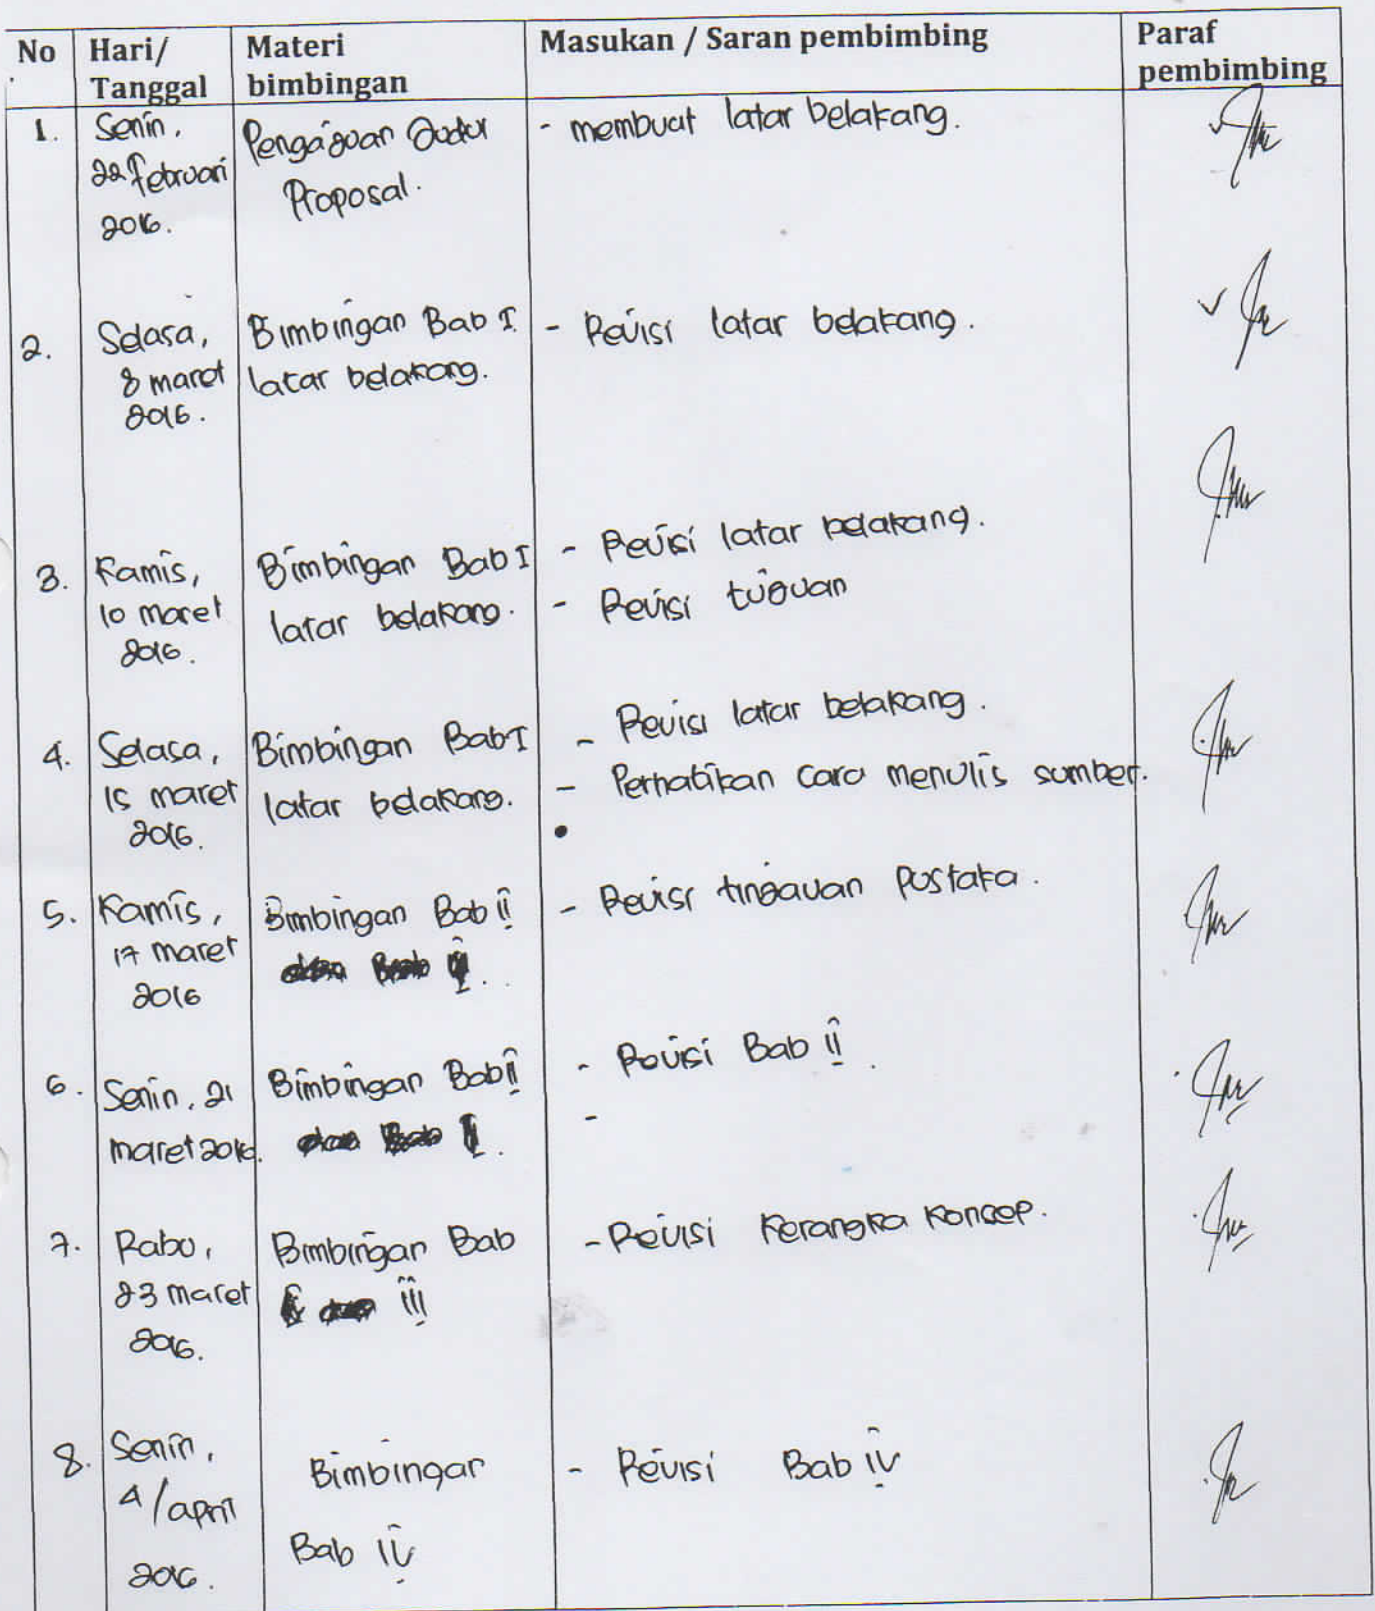 No Hari/ Tanggal Materi bimbingan Masukan / Saran pembimbing Paraf pembimbing
1. Senin, 22 Februari 2016. Pengajuan Judul Proposal. - membuat latar belakang.
2. Selasa, 8 maret 2016. Bimbingan Bab I latar belakang. - Revisi latar belakang.
3. Kamis, 10 maret 2016. Bimbingan Bab I latar belakang. - Revisi latar belakang. - Revisi tujuan
4. Selasa, 15 maret 2016. Bimbingan Bab I latar belakang. - Revisi latar belakang. - Perhatikan cara menulis sumber.
5. Kamis, 17 maret 2016 Bimbingan Bab II - Revisi tinjauan pustaka.
6. Senin, 21 maret 2016. Bimbingan Bab II - Revisi Bab II. -
7. Rabu, 23 maret 2016. Bimbingan Bab III - Revisi Kerangka Konsep.
8. Senin, 4/april 2016. Bimbingan Bab IV - Revisi Bab IV